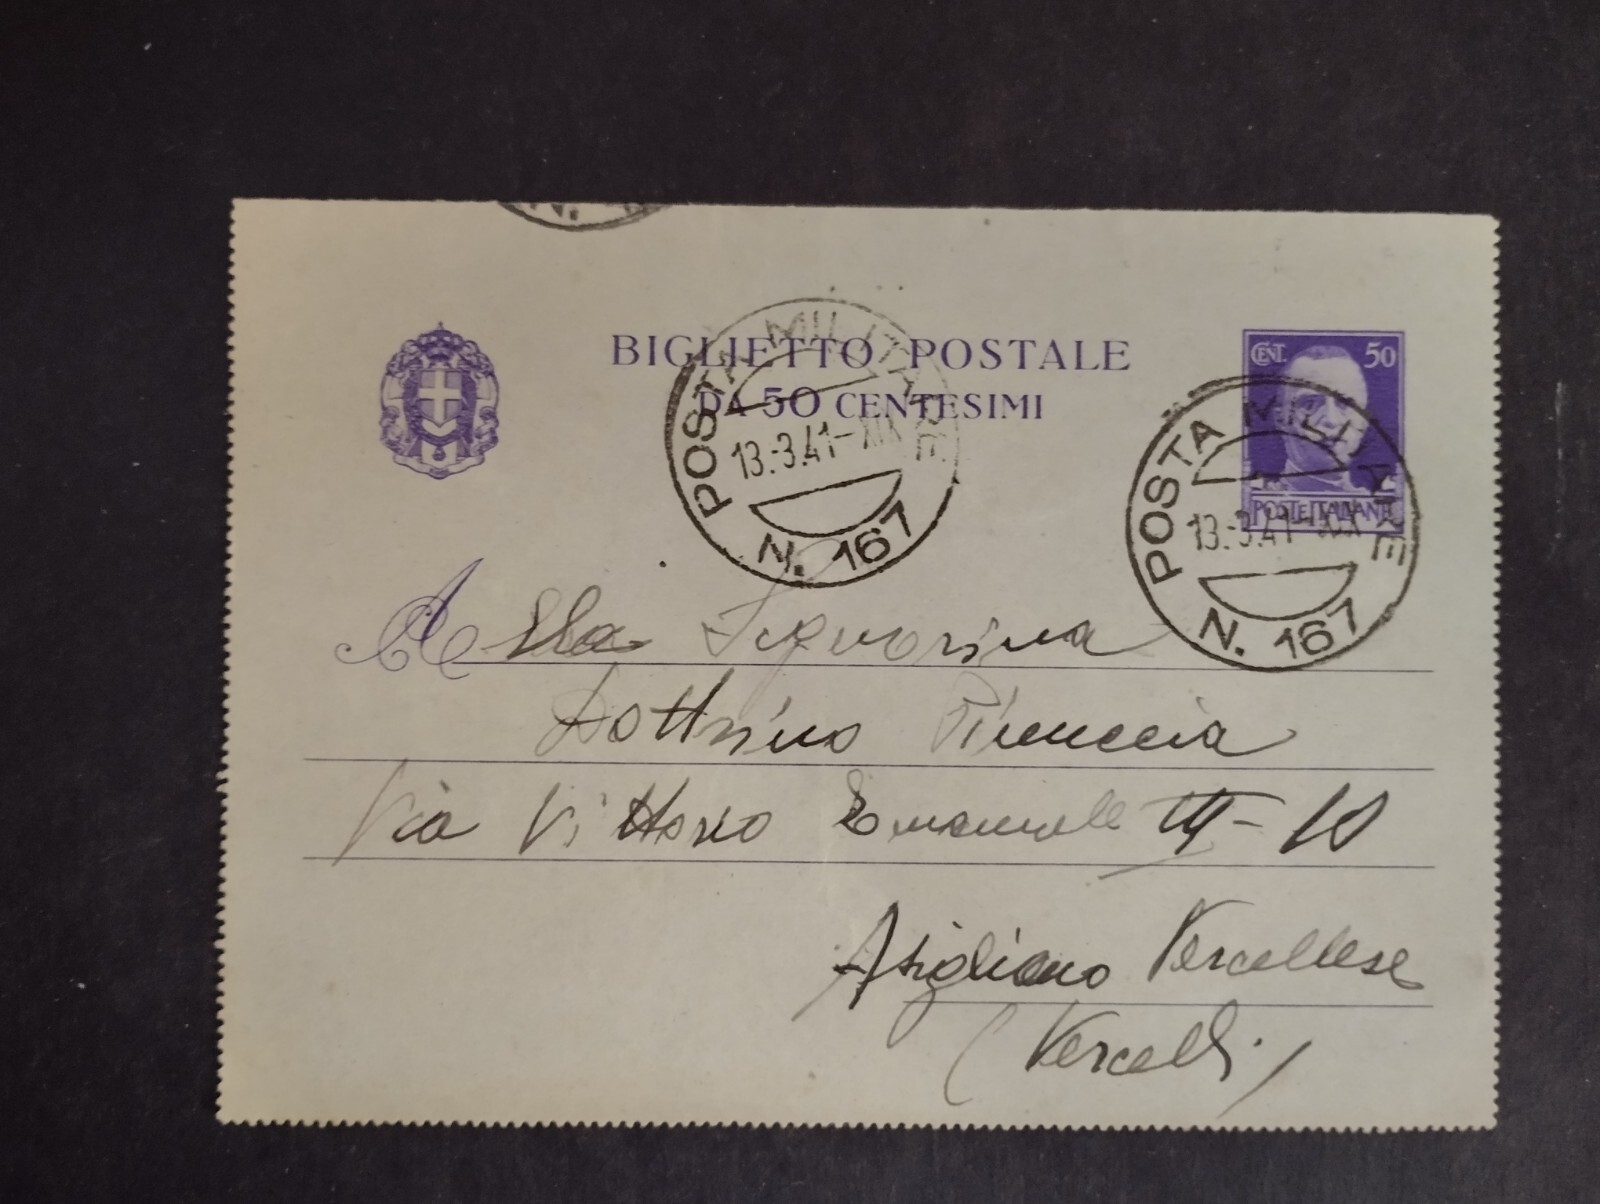 N.
BIGLIETTO POSTALE
DA 50 CENTESIMI
CENT. 50
POSTE ITALIANE
POSTA MILITARE
13.-3.41-XIX
N. 167
POSTA MILITARE
13.-3.41-XIX
N. 167
Alla Signorina
Dottrino Pinuccia
Via Vittorio Emanuele III - 10
Asigliano Vercellese
(Vercelli)